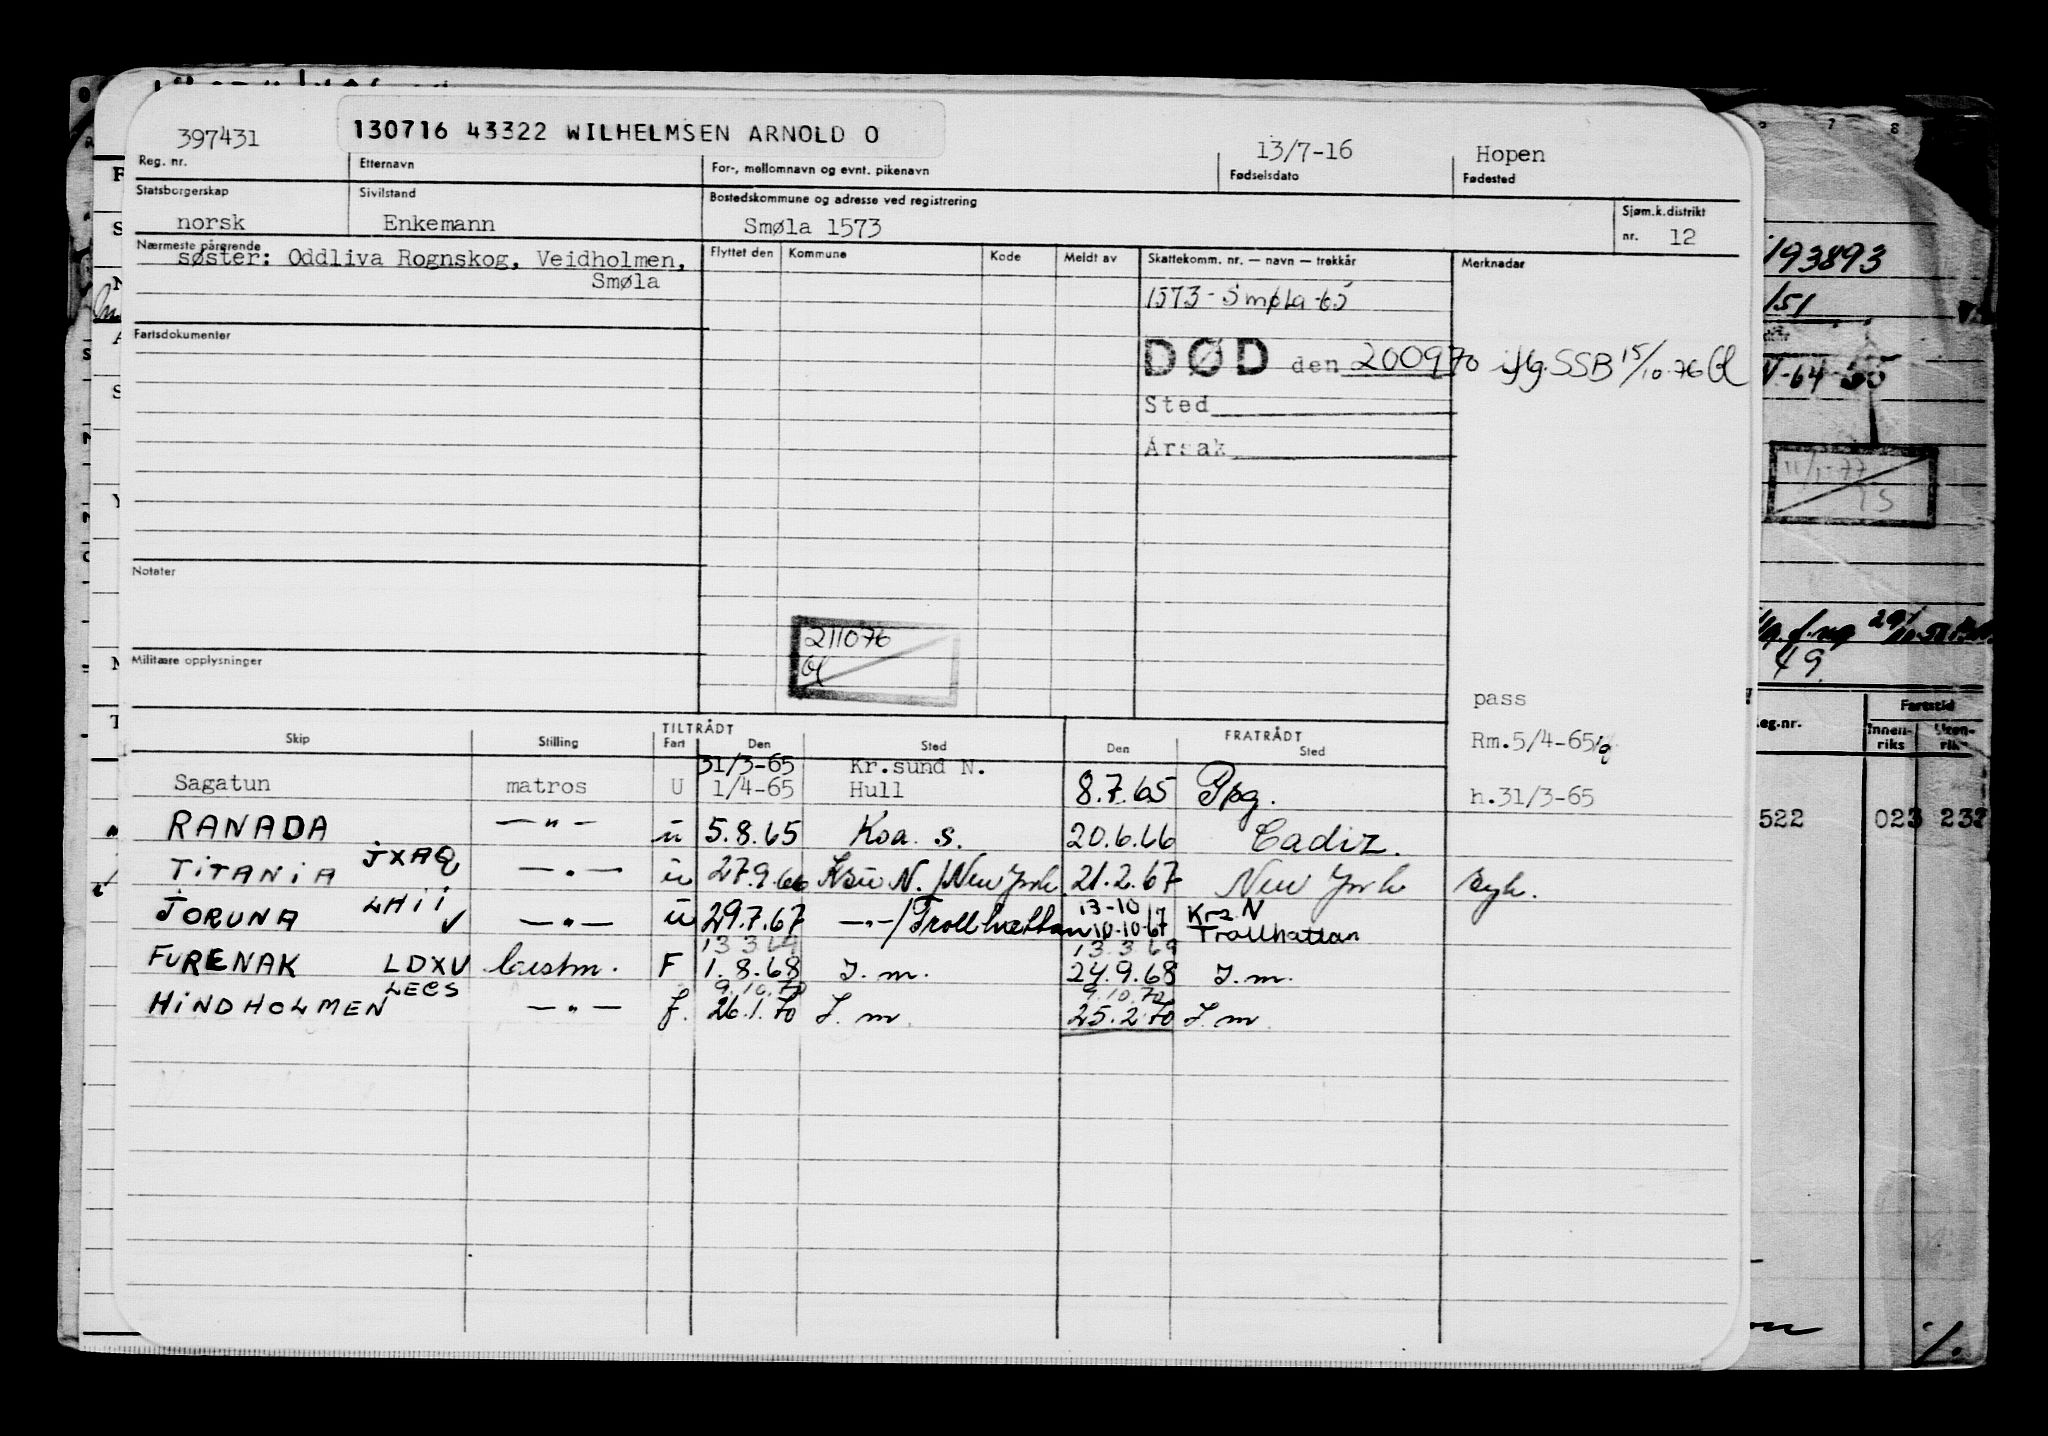 397431
130716 43322 WILHELMSEN ARNOLD O
13/7-16
Hopen
Reg. nr.
Etternavn
For-, mellomnavn og evnt. pikenavn
Fødselsdato
Fødested
Statsborgerskap
Sivilstand
Bostedskommune og adresse ved registrering
Sjøm.k.distrikt
norsk
Enkemann
Smøla 1573
nr. 12
Nærmeste pårørende
søster: Oddliva Rognskog, Veidholmen,
Smøla
Flyttet den
Kommune
Kode
Meldt av
Skattekomm. nr. — navn — trekkår
Merknader
1573 - Smøla -65
Fartsdokumenter
DØD den 200970 iflg. SSB 15/10-76
Sted
Årsak
Notater
211076
Militære opplysninger
pass
Rm.5/4-65
h.31/3-65
TILTRÅDT
FRATRÅDT
Skip
Stilling
Fart
Den
Sted
Den
Sted
31/3-65 Kr.sund N.
Sagatun matros U 1/4-65 Hull 8.7.65 Ppg.
RANADA —"— u 5.8.65 Koa. s. 20.6.66 Cadiz.
TITANIA JXAQ —"— u 27.9.66 Ksu N./New York 21.2.67 New York syk.
13-10 Krs N
JORUNA LHII —"— u 29.7.67 —"—/Trollhættan 10-10-67 Trollhattan
13 3 69 13.3 69
FURENAK LDXV F 1.8.68 J. m. 24.9.68 J. m.
9.10.70 9.10.70
HINDHOLMEN LECS —"— f. 26.1.70 J. m. 25.2.70 J. m.
6 7 8
193893
/51
V-64-55
11/1-77
49
eg.nr.
Fartstid
Innen-
riks
Uten-
riks
522 023 232